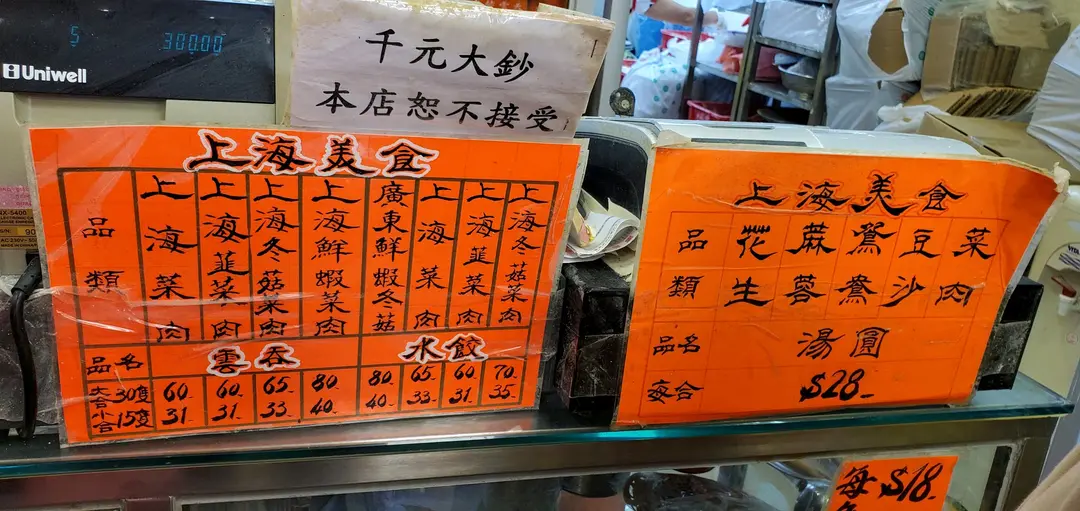 $ 300.00
Uniwell
千元大鈔
本店恕不接受
上海美食
品類 上海菜肉 上海韮菜肉 上海冬菇菜肉 上海鮮蝦菜肉 廣東鮮蝦冬菇 上海菜肉 上海韮菜肉 上海冬菇菜肉
品名 雲吞 水餃
大合30隻 60- 60- 65- 80- 80- 65- 60- 70-
小合15隻 31- 31- 33- 40- 40- 33- 31- 35-
上海美食
品類 花生 蔴蓉 鴛鴦 豆沙 菜肉
品名 湯圓
每合 $28-
每 $18-